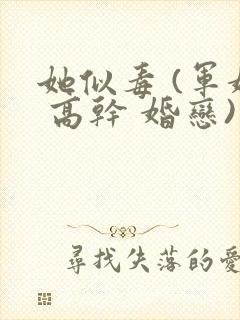 她似毒 (軍
高幹 婚戀)
尋找失落的愛